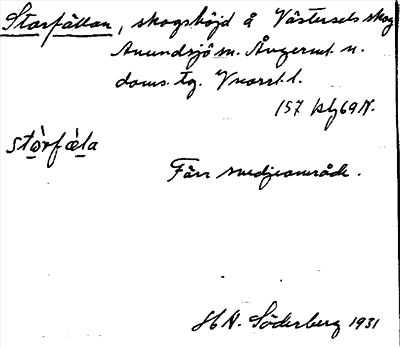 Storfällan, skogshöjd å Västersels skog
Anundsjö sn. Ångerml. n.
doms. tg. Vnorrl. l.
157 klj 69 N.
stòrfæ̀la
Förr svedjeområde.
H N. Söderberg 1931